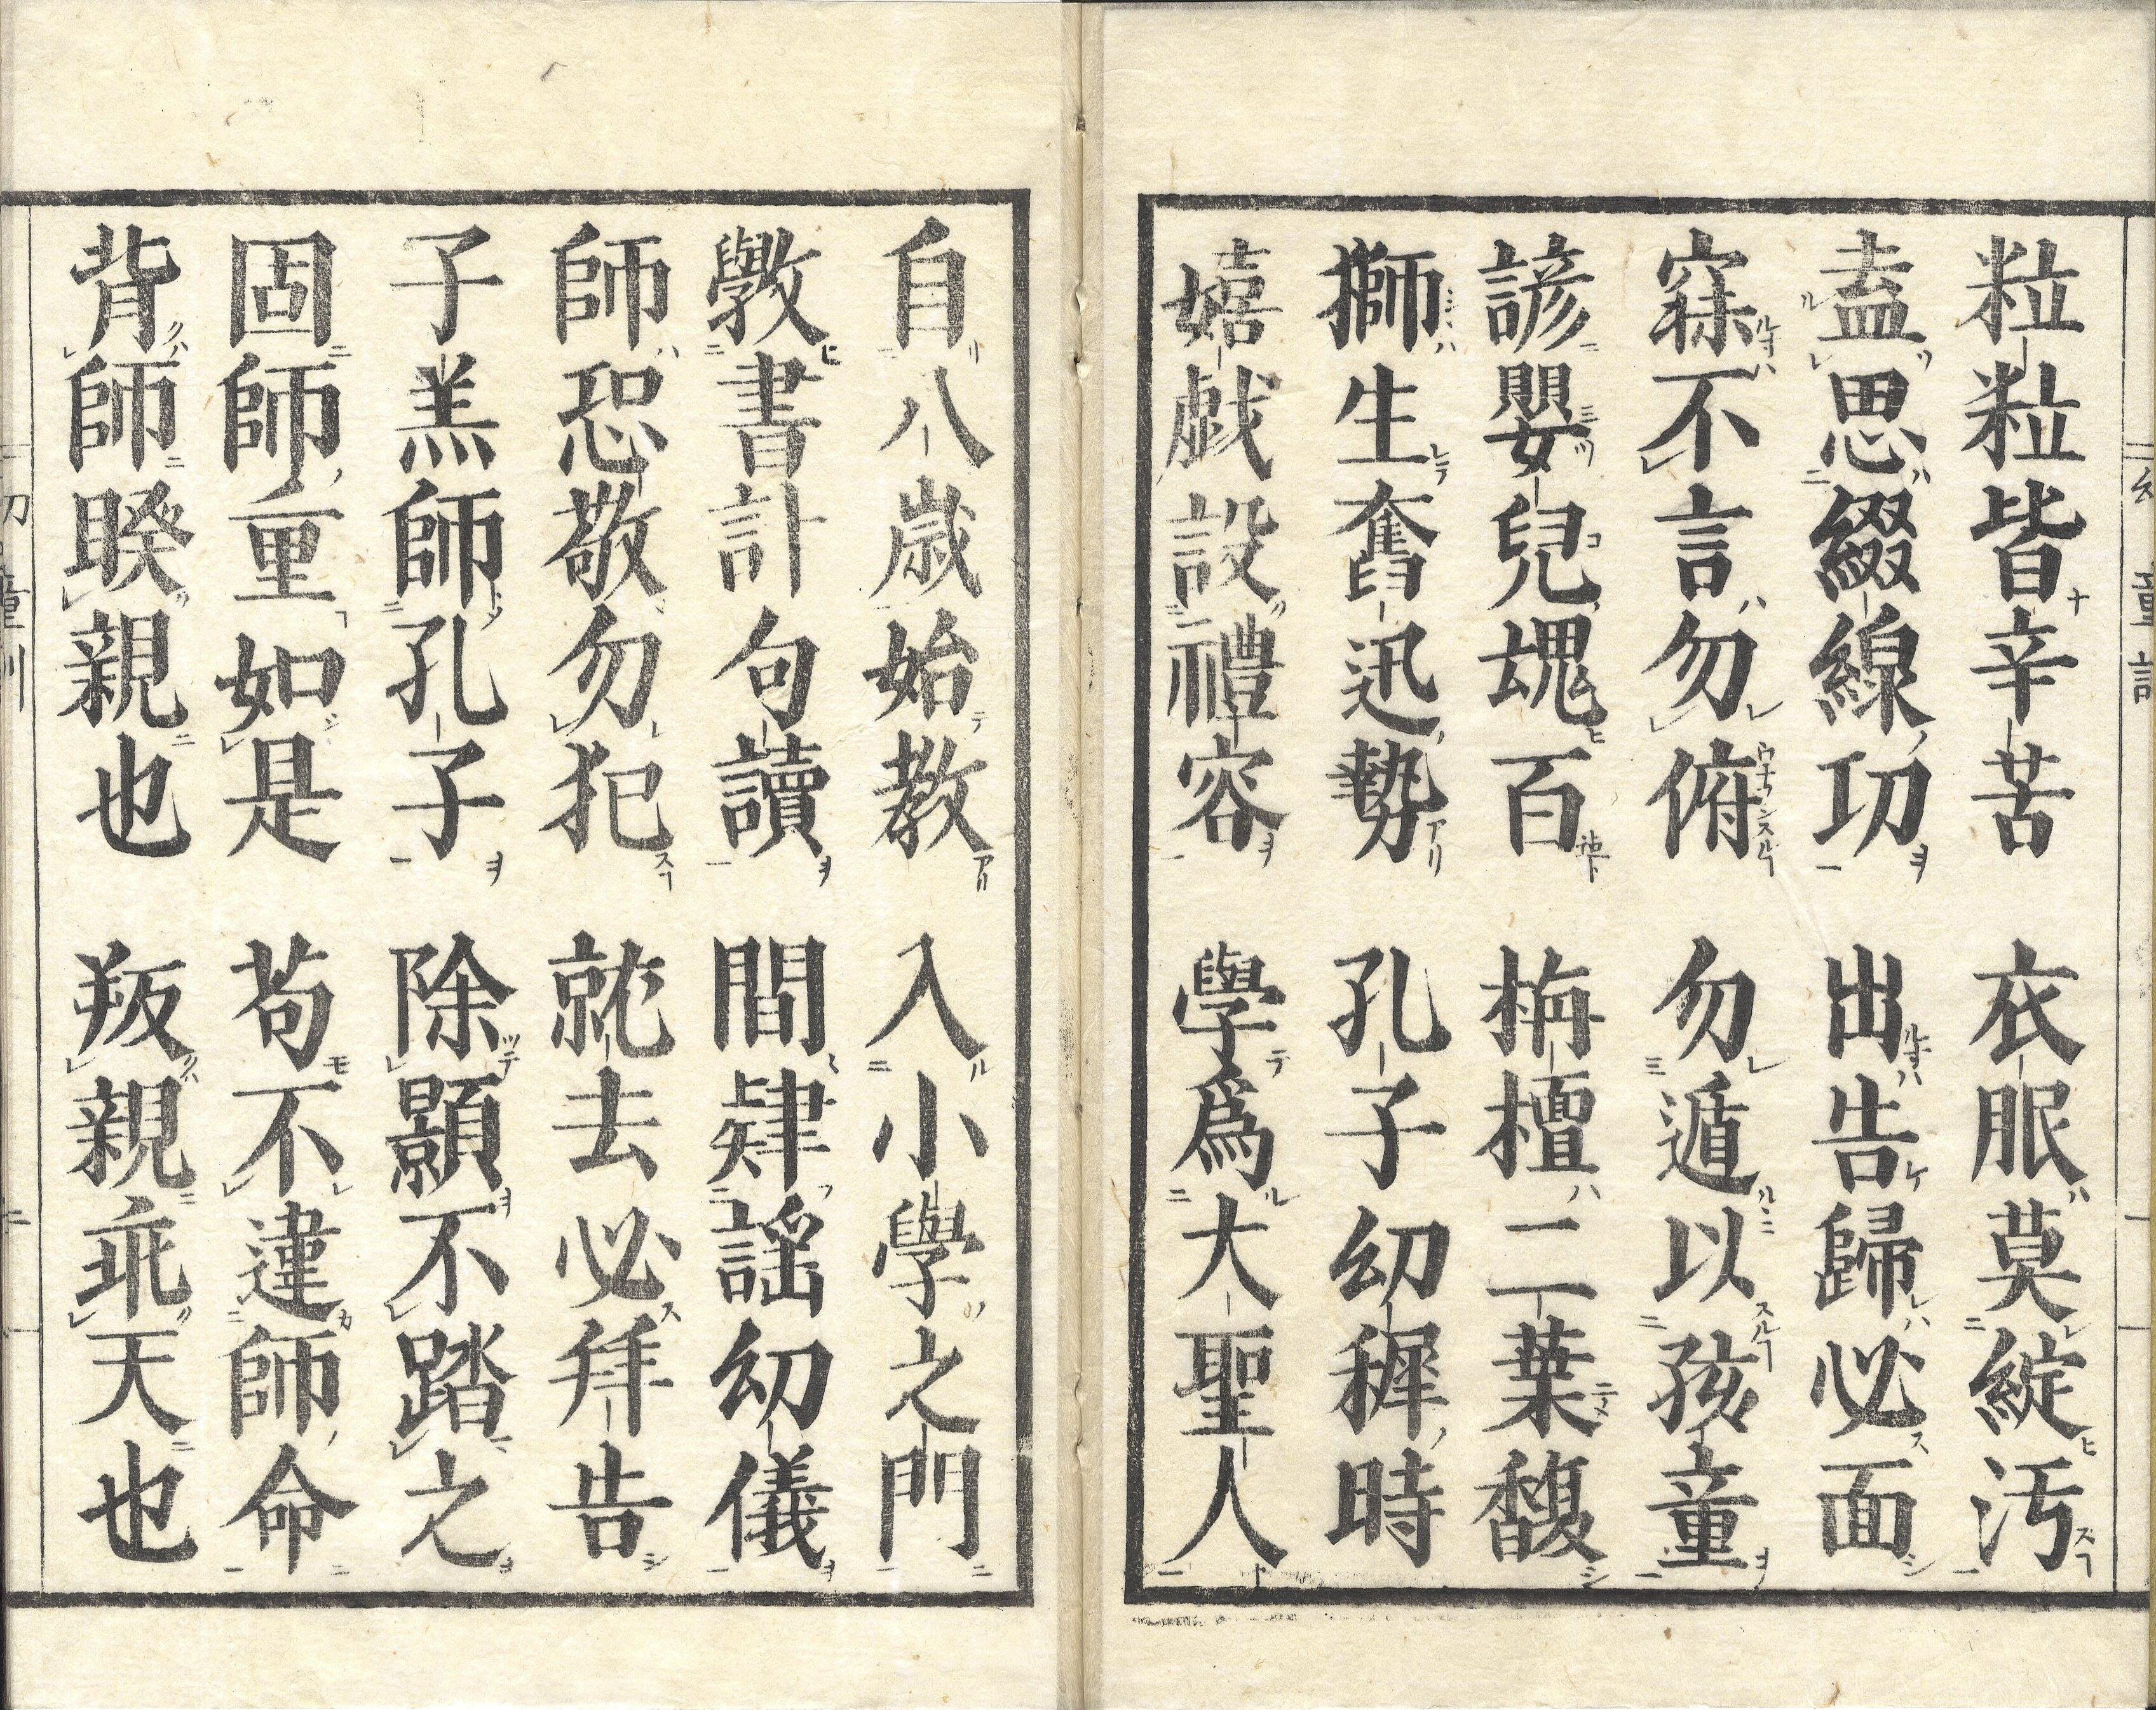 粒粒皆辛苦　衣服莫綻汚
盍思綴線功　出告歸必面
寐不言勿俯　勿遁以孩童
諺嬰兒塊百　栴檀二葉馥
獅生奮迅勢　孔子幼穉時
嬉戯設禮容　學爲大聖人
自八歳始教　入小學之門
斆書計句讀　間肄謡幼儀
師恐敬勿犯　就去必拜告
子羔師孔子　除顯不踏之
固師重如是　苟不違師命
背師睽親也　叛親乖天也